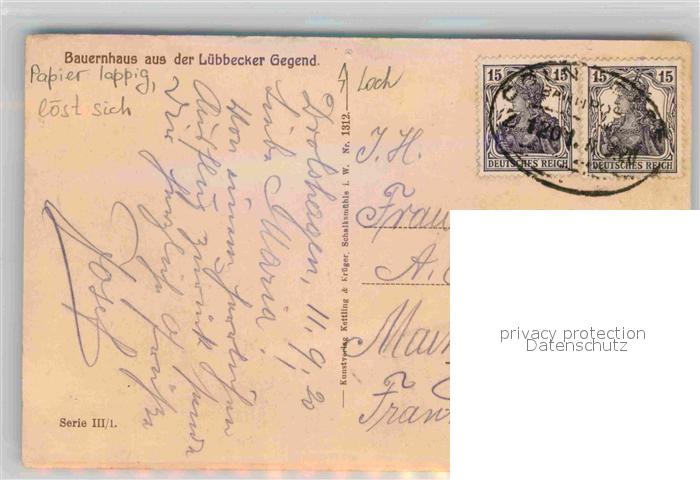 Bauernhaus aus der Lübbecker Gegend.
Papier lappig,
löst sich
Loch
15 15
DEUTSCHES REICH
15
DEUTSCHES REICH
BAHNPOST
Drolshagen, 11.9.20
Liebe Maria!
Von
Ausflug zurück sende
Dir herzliche Grüße
Josef
Kunstverlag Kettling & Krüger, Schalksmühle i. W. Nr. 1312.
I. H.
Frau
A.
Main
Fran
Serie III/1.
privacy protection
Datenschutz